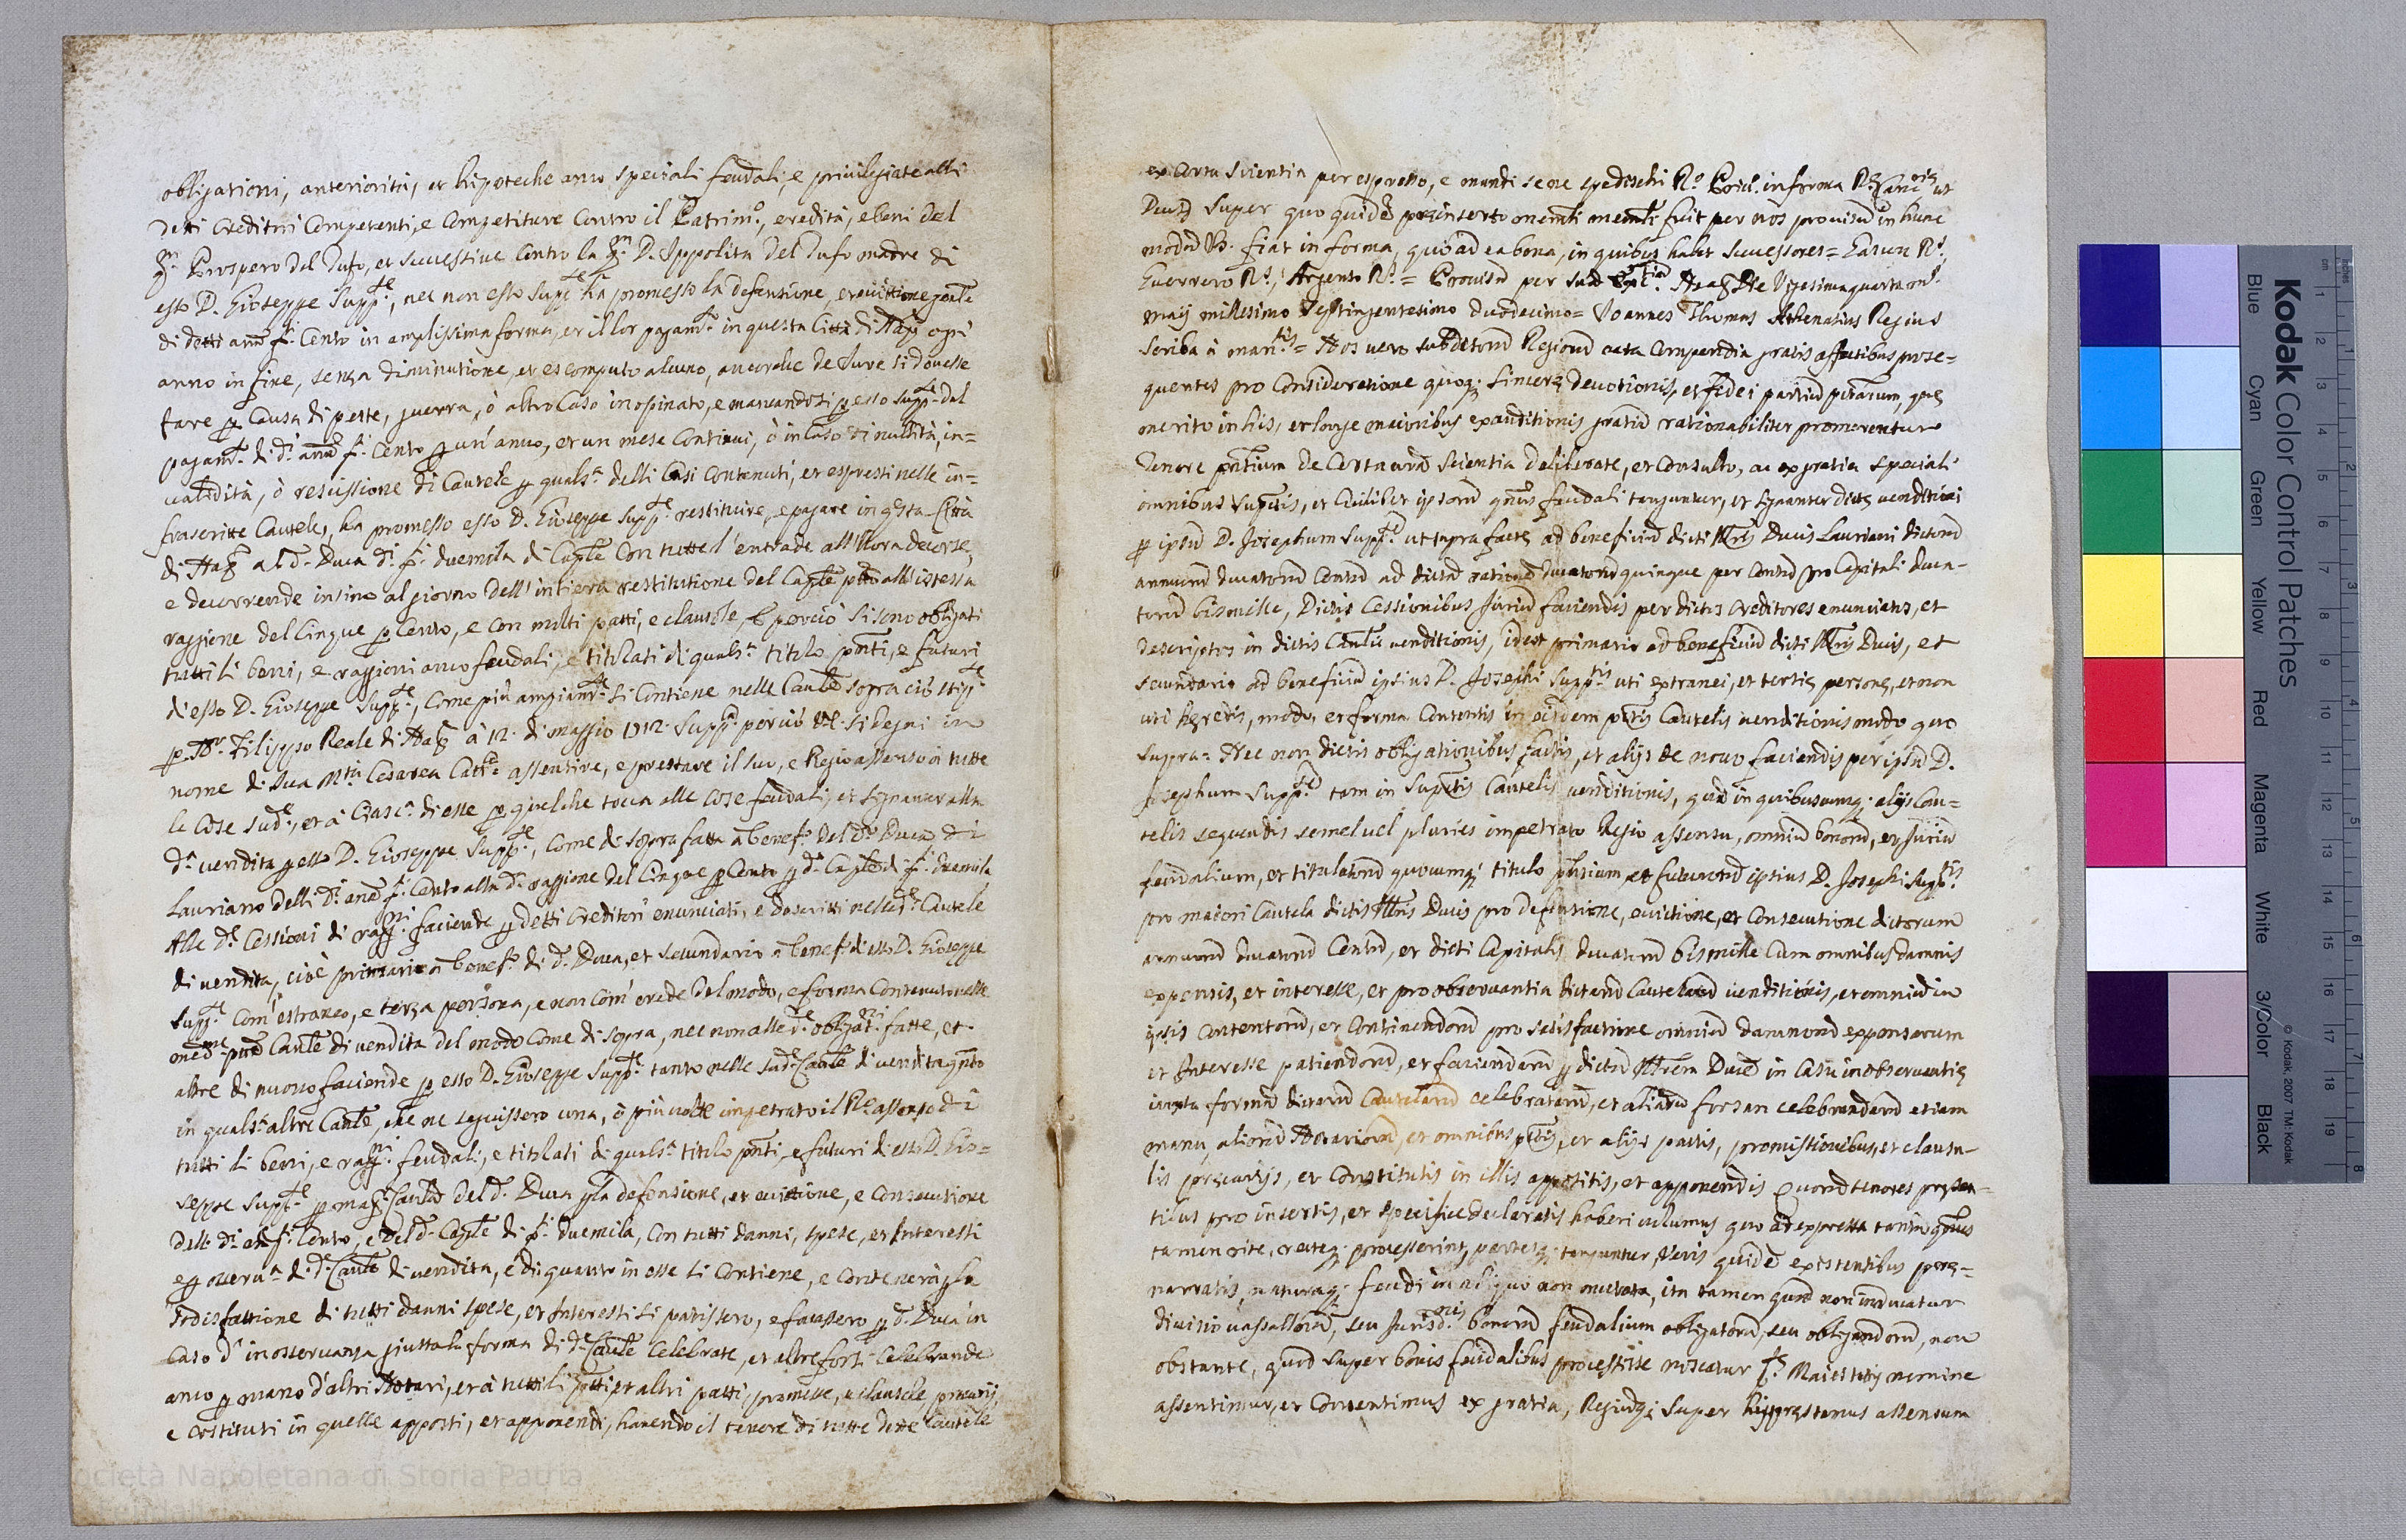 obligationi, anteriorità, et hipoteche anco speciali feudali, e privilegiate alli
detti Creditori Competenti, e Competiture Contro il Patrim.º, eredità, e beni del
Prospero del Tufo, et successive Contro la D. Ippolita del Tufo madre di
esso D. Gioseppe Supp.te, nec non esso Supp.te ha promesso la defensione, evictione
di detti Cento in amplissima forma, et il lor pagam.to in questa Città di Nap. ogni
anno in fine, senza diminutione, et escomputo alcuno, ancorche de Iure si dovesse
fare p Causa di peste, guerra, ò altro Caso inopinato, e mancandosi p esso Supp.te del
pagam.to di d.i Cento p un' anno, et un mese Continui, ò in Caso di nullità, in=
validità, ò rescissione di Cautele p quals.a delli Casi Contenuti, et espressi nelle in=
frascritte Cautele, ha promesso esso D. Gioseppe Supp.te restituire, e pagare in q̃sta Città
di Nap. al d. Duca d.i duemila di Cap̃le Con tutte l'entrade all'hora decorse,
e decorrende insino al giorno dell'intiera restitutione del Cap̃le all'istessa
raggione del Cinque p Cento, e con molti patti, e clausole, e perciò si sono obligati
tutti li beni, e raggioni anco feudali, e titolati di quals.a titolo p̃nti, e futuri
d'esso D. Gioseppe Supp.te, Come più ampiam.te si Contiene nelle Cautele sopra ciò stip.te
p N.r Filippo Reale di Nap. à 12. di maggio 1712. Supp.a perciò V.E. si degni in
nome di Sua M.tà Cesarea Catt.ca assentire, e prestare il suo, e Regio assenso à tutte
le Cose sud.e, et à Ciasc.a di esse p quelche tocca alle Cose feudali, et signanter alla
d.a vendita p esso D. Gioseppe Supp.te, Come di sopra fatta à benef.o del d.o Duca di
Lauriano delli d.i Cento alla d.a raggione del Cinque p Cento p d.o Cap̃le di duemila
Alle d.e Cessioni di ragg.ni faciende p detti Creditori enunciati, e descritti nelle d.e Cautele
di vendita, cioè primario à benef.o di d.o Duca, et secundario à benef.o di esso D. Gioseppe
Supp.te Com' estraneo, e terza persona, e non Com' erede del modo, e forma Contenuto nelle
Cautele di vendita del modo Come di sopra, nec non alle d.e obligat.ni fatte, et
altre di nuovo faciende p esso D. Gioseppe Supp.te tanto nelle sud.e Cautele di vendita q̃nto
in quals.a altre Cautele, che ne seguissero una, ò più volte impetrato il R.o assenso di
tutti li beni, e ragg.ni feudali, e titolati di quals.a titolo p̃nti, e futuri di esso D. Gio=
seppe Supp.te p magg. Cautela del d. Duca p la defensione, et evittione, e Consecutione
delli d.i Cento, e del d. Cap̃le di duemila, Con tutti danni, spese, et Interessi
e p osserv.a di d.e Cautele di vendita, e di quanto in esse si Contiene, e Contenerà p la
sodisfattione di tutti danni spese, et Interessi si patissero, e facessero p d. Duca in
Caso d' inosservanza giusta la forma di d.e Cautele Celebrate, et altre forsi Celebrande
anco p mano d'altri Notari, et à tutti li p̃tti, et altri patti, promesse, e clausole precarij,
e costituti in quelle apposti, et apponendi, havendo il tenore di tutte dette Cautele
ex Certa Scientia per espresso, e mandi se ne spedischi R.o Privil. in forma ut
Deus Super quo quidẽ preinserto memli fuit per nos provisũ in hunc
modũ Vt. fiat in forma, quò ad ea bona, in quibus habet Successores = Gascon R.s
Guerrero R.s, Argento R.s = Provisũ per Suã Exc.tiã Neap. Die Vigesimaquarta m.s
maij millesimo Septingentesimo duodecimo = Joannes Thomas Athenasius Regius
Scriba à man.tis = Nos vero subditorũ Regiorũ cuncta Compendia gratis affectibus prose=
quentes pro Consideratione quoq. Sincere devotionis, et fidei partiũ p̃tarum, que
merito in his, et longe maioribus exauditionis gratiã rationabiliter promerentur
Tenore p̃ntium de Certa nr̃a scientia deliberate, et Consulto, ac ex gratia speciali
omnibus sup̃tis, et Cuilibet ipsorũ q̃tenus feudali tanguntur, et signanter dicte venditioni
p ipsũ D. Josephum supp.tẽ ut supra facte ad beneficiũ dicti Ill̃ris Ducis Lauriani dictorũ
annuorũ ducatorũ Centũ ad dictã rationẽ ducatorũ quinque per Centũ pro Capitali duca-
torũ bismille, Dictis Cessionibus Juriũ faciendis per dictos Creditores enunciatos, et
descriptos in dictis Cautelis venditionis, idest primario ad beneficiũ dicti Ill̃ris Ducis, et
secundario ad beneficiũ ipsius D. Josephi Supp.tis uti extranei, et tertie persone, et non
uti heredis, modo, et forma Contentis in eisdem p̃tis Cautelis venditionis modo quo
supra = Nec non dictis obligationibus factis, et alijs de novo faciendis per ipsũ D.
Josephum Supp.tẽ tam in sup̃tis Cautelis venditionis, quã in quibuscumq. alijs Cau=
telis sequendis semel vel pluries impetrato Regio assensu, omniũ bonorũ, et Juriũ
feudalium, et titulatorũ quocumq. titulo p̃ntium, et futurorũ ipsius D. Josephi Supp.tis
pro maiori Cautela dictis Ill̃ris Ducis pro defensione, evictione, et Consecutione dictorum
annuorũ ducatorũ Centũ, et dicti Capitalis ducatorũ bismille Cum omnibus damnis
expensis, et interesse, et pro observantia dictarũ Cautelarũ venditionis, et omniũ in
ipsis Contentorũ, et Continendorũ pro satisfactione omniũ damnorũ expensarum
et Interesse patiendorũ, et faciendorũ p dictũ Ill̃rem Ducẽ in Casu inobservantie
iuxta formã dictarũ Cautelarũ celebratarũ, et aliarũ forsan celebrandarũ etiam
manu aliorũ Notariorũ, et omnibus p̃tis, et alijs pactis, promissionibus, et clausu-
lis precarijs, et Constitutis in illis appositis, et apponendis Quorũ tenores presen=
tibus pro insertis, et specifice declaratis haberi volumus quo ad expressa tantũ q̃tenus
tamen rite, recteq. processerint, partesq. tanguntur, Veris quidẽ existentibus pre=
narratis, naturaq. feudi in aliquo non mutata, ita tamen quod non inducatur
divisio vassallorũ, seu Jurisd.nis bonorũ feudalium obligatorũ, seu obligandorũ, non
obstante, quod super bonis feudalibus processisse noscatur p.te Maiestatis nomine
assentimur, et Consentimus ex gratia, Regiũq; super his prestamus assensum